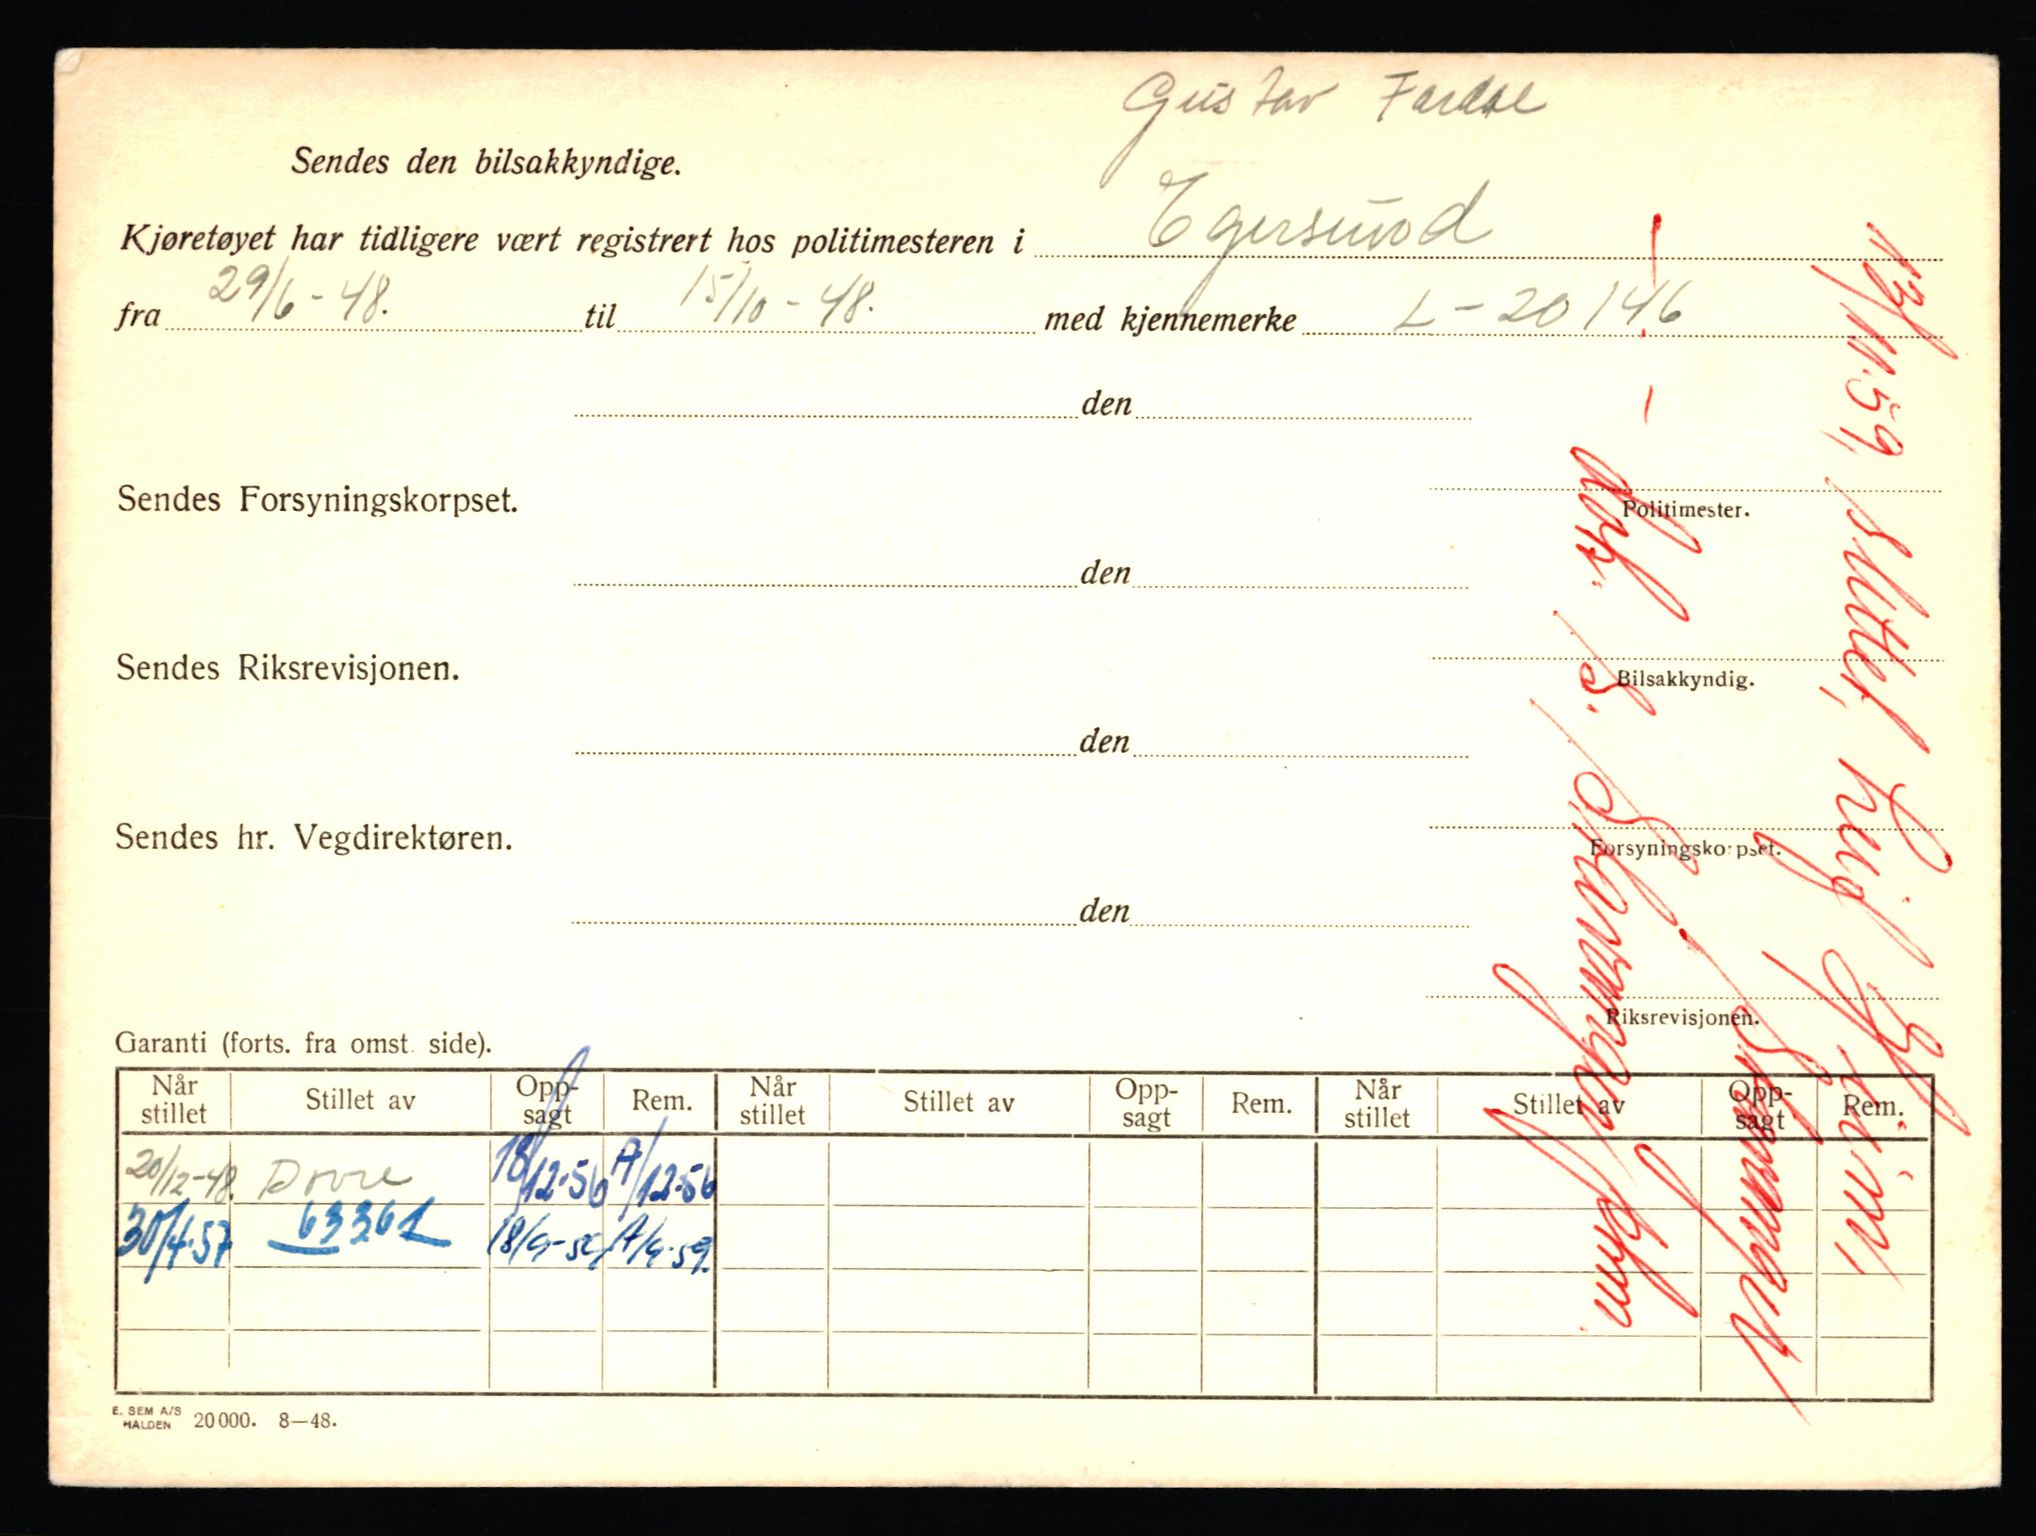 Gustav
Sendes den bilsakkyndige.
Kjøretøyet har tidligere vært registrert hos politimesteren i Egersund
fra 29/6-48. til 15/10-48. med kjennemerke L-20146
den
Sendes Forsyningskorpset.
Politimester.
den
Sendes Riksrevisjonen.
Bilsakkyndig.
den
Sendes hr. Vegdirektøren.
Forsyningskorpset.
den
Riksrevisjonen.
Garanti (forts. fra omst. side).
Når stillet Stillet av Opp-sagt Rem. Når stillet Stillet av Opp-sagt Rem. Når stillet Stillet av Opp-sagt Rem.
20/12-48. Dovre 18/12-56 A/12-56
30/4-57 63361 18/9-59 A/9-59.
E. SEM A/S
HALDEN 20000. 8—48.
13/11-59, Slettet,